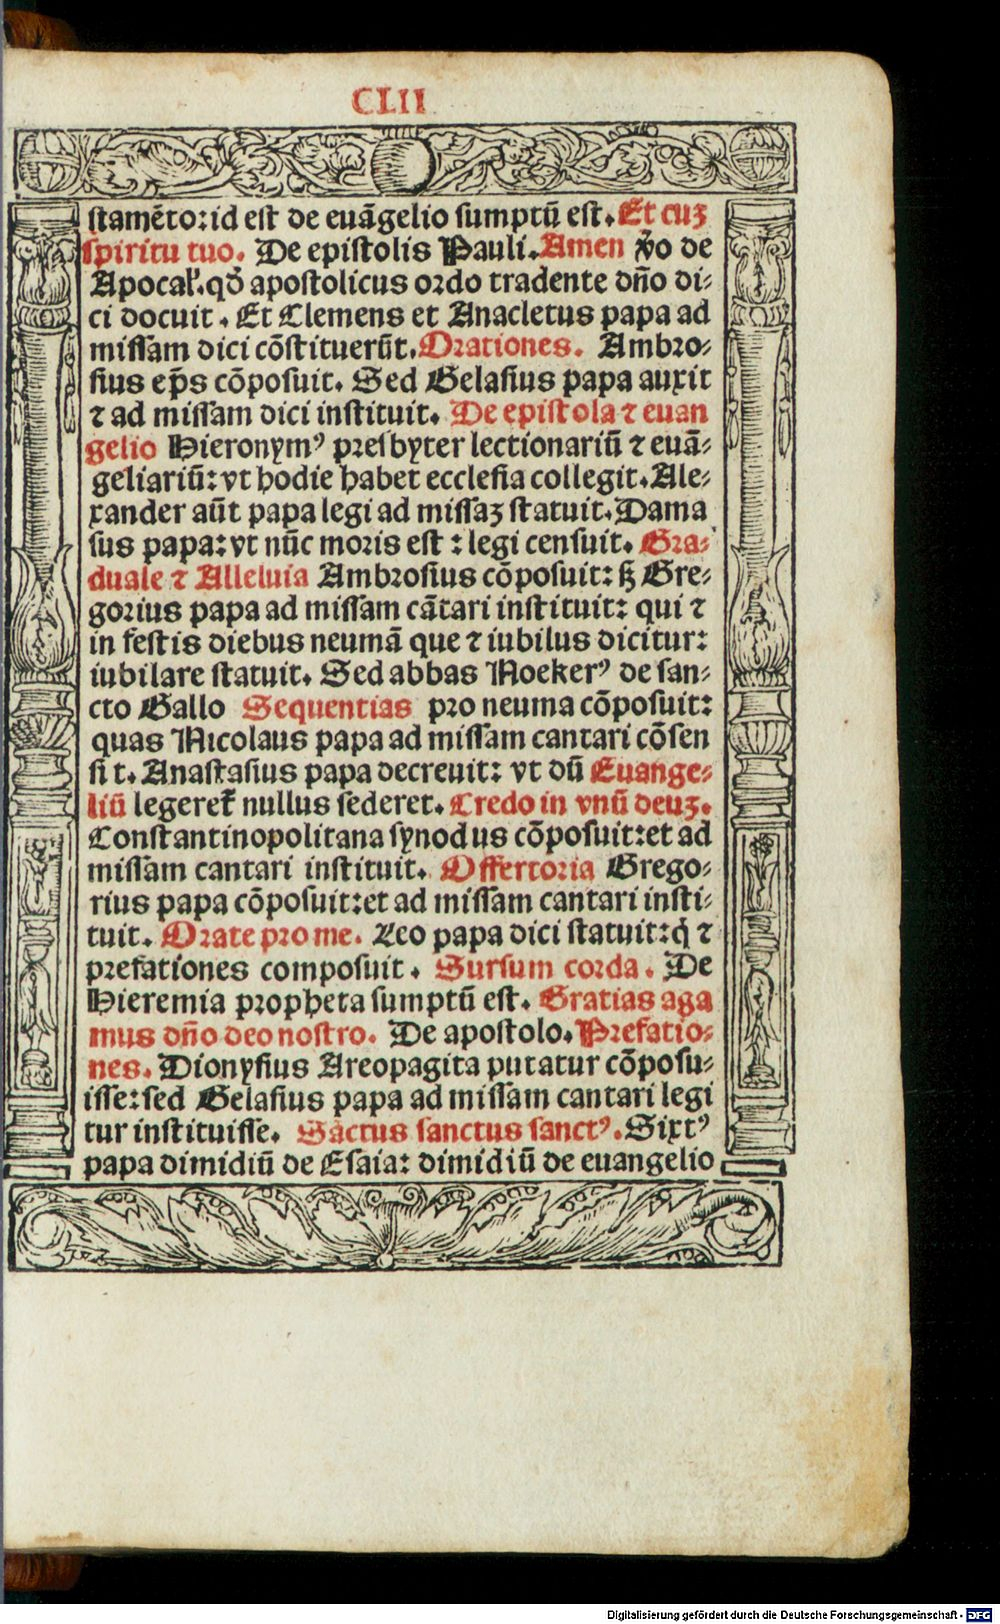 CLII
stamēto: id est de euāgelio sumptū est. Et cuꝫ
spiritu tuo. De epistolis Pauli. Amen v̄o de
Apocal'. qđ apostolicus ordo tradente dño di⸗
ci docuit. Et Clemens et Anacletus papa ad
missam dici cōstituerūt. Orationes. Ambro⸗
sius ep̄s cōposuit. Sed Gelasius papa auxit
⁊ ad missam dici instituit. De epistola ⁊ euan
gelio Hieronymꝰ presbyter lectionariū ⁊ euā⸗
geliariū: vt hodie habet ecclesia collegit. Ale⸗
xander aūt papa legi ad missaꝫ statuit. Dama
sus papa: vt nūc moris est : legi censuit. Gra⸗
duale ⁊ Alleluia Ambrosius cōposuit: sꝫ Gre⸗
gorius papa ad missam cātari instituit: qui ⁊
in festis diebus neumā que ⁊ iubilus dicitur:
iubilare statuit. Sed abbas Noekerꝰ de san⸗
cto Gallo Sequentias pro neuma cōposuit:
quas Nicolaus papa ad missam cantari cōsen
sit. Anastasius papa decreuit: vt dū Euange⸗
liū legeret̄ nullus sederet. Credo in vnū deuꝫ.
Constantinopolitana synodus cōposuit: et ad
missam cantari instituit. Offertoria Grego⸗
rius papa cōposuit: et ad missam cantari insti⸗
tuit. Orate pro me. Leo papa dici statuit: q̇ ⁊
prefationes composuit. Sursum corda. De
Hieremia propheta sumptū est. Gratias aga
mus dño deo nostro. De apostolo. Prefatio⸗
nes. Dionysius Areopagita putatur cōposu⸗
isse: sed Gelasius papa ad missam cantari legi
tur instituisse. Sāctus sanctus sanctꝰ. Sixtꝰ
papa dimidiū de Esaia: dimidiū de euangelio
Digitalisierung gefördert durch die Deutsche Forschungsgemeinschaft - DFG